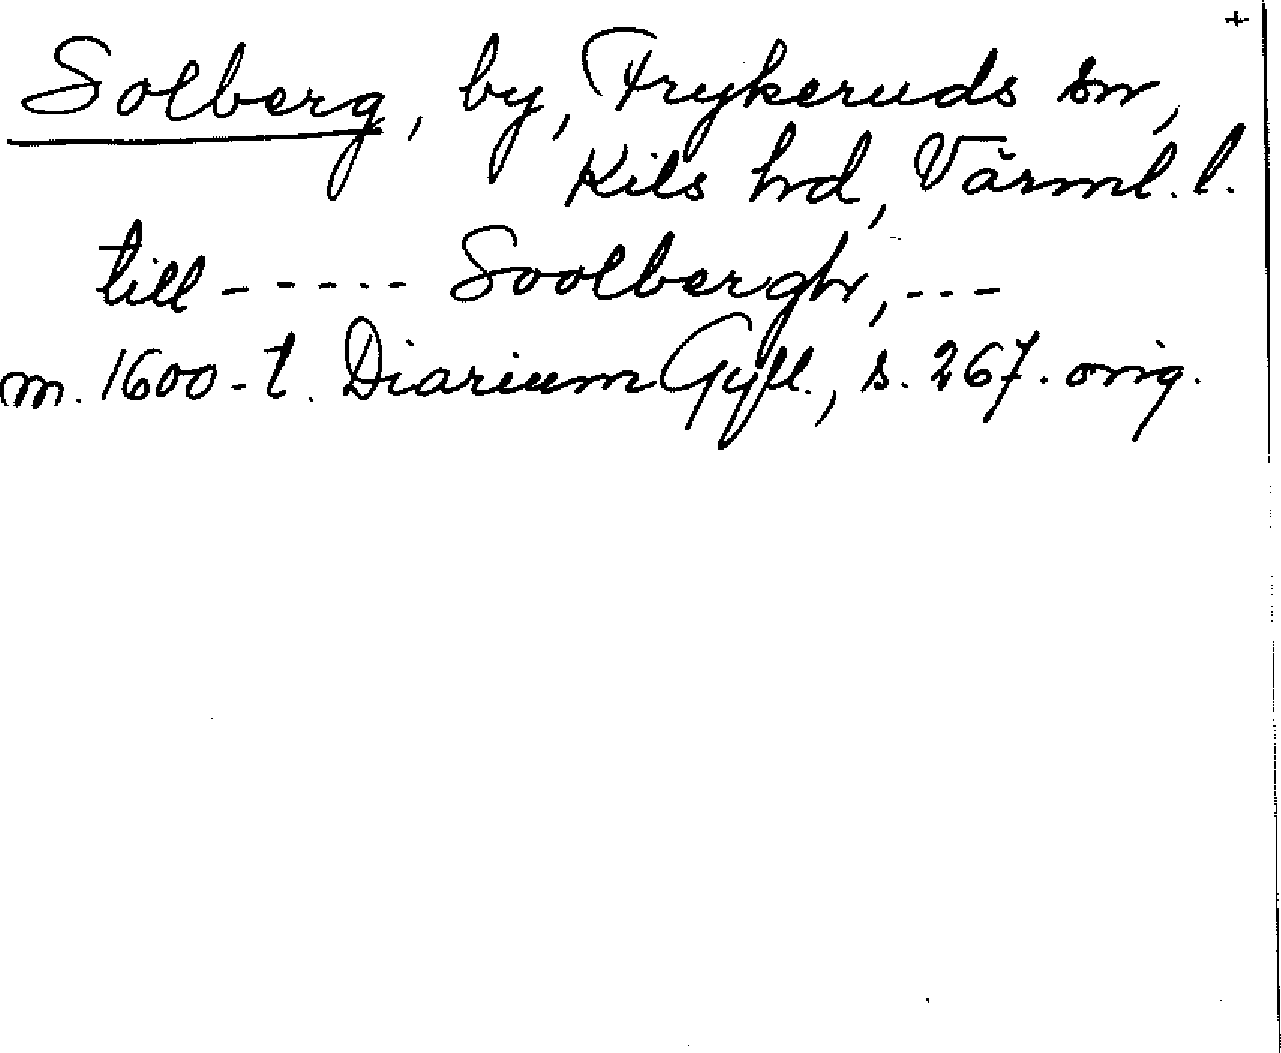 +
Solberg, by, Frykeruds sn,
Kils hd, Värml. l.
till ----- Soolbergh, ---
m. 1600-t. Diarium Gyll., s. 267. orig.